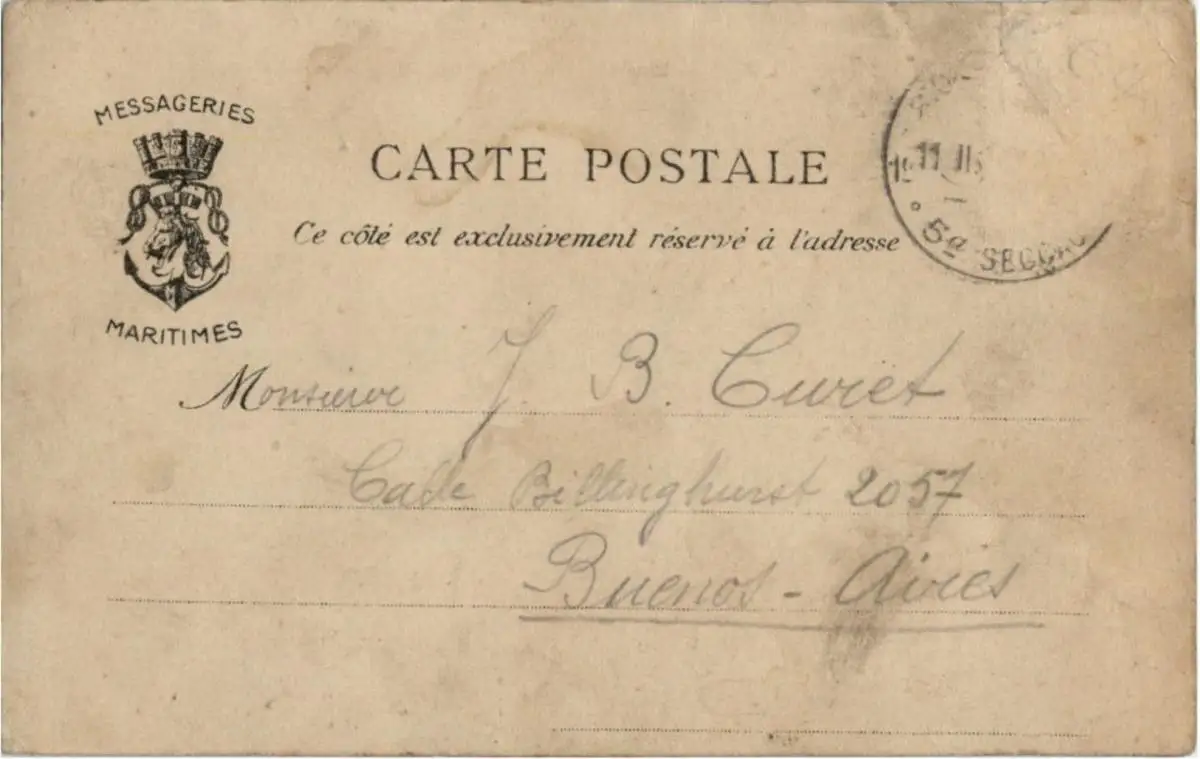 MESSAGERIES
MARITIMES
CARTE POSTALE
Ce côté est exclusivement réservé à l'adresse
11 III
5ª SECÇÃO
Monsieur J. B. Curet
Calle Billinghurst 2057
Buenos - Aires